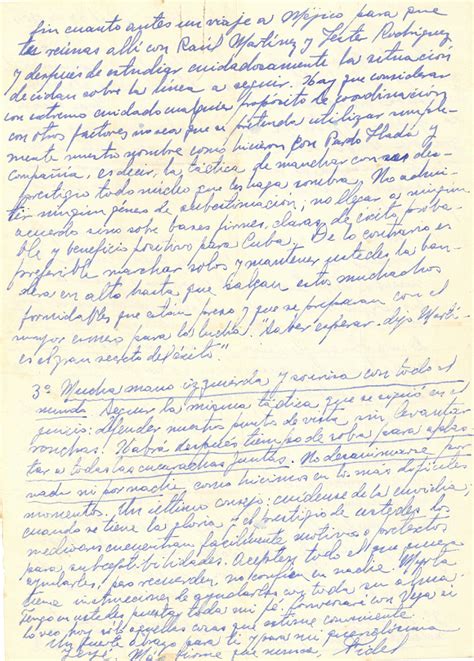 fin cuanto antes un viaje a Méjico para que
te reunas allí con Raúl Martínez y Leste Rodríguez
y después de estudiar cuidadosamente la situación
decidan sobre la línea a seguir. Hay que considerar
con extremo cuidado cualquier propósito de coordinación
con otros factores, no sea que se pretenda utilizar simple-
mente nuestro nombre como hicieron con Pardo Llada y
compañía, es decir, la táctica de manchar con su des-
prestigio todo núcleo que les haga sombra. No admi-
tir ningún género de subestimación; no llegar a ningún
acuerdo sino sobre bases firmes, claras, de éxito proba-
ble y beneficio positivo para Cuba. De lo contrario es
preferible marchar solos y mantener ustedes la ban-
dera en alto hasta que salgan estos muchachos
formidables que están presos y que se preparan con el
mayor esmero para la lucha. "Saber esperar - dijo Martí -
es el gran secreto del éxito".
3º Mucha mano izquierda y sonrisa con todo el
mundo. Seguir la misma táctica que se siguió en el
juicio: defender nuestros puntos de vista sin levantar
ronchas. Habrá después tiempo de sobra para aplas-
tar a todas las cucarachas juntas. No desanimarse por
nada ni por nadie como hicimos en los más difíciles
momentos. Un último consejo: cuídense de la envidia;
cuando se tiene la gloria y el prestigio de ustedes, los
mediocres encuentran fácilmente motivos o pretextos
para susceptibilidades. Acepten todo el que quiera
ayudarles, pero recuerden, no confíen en nadie. Myrta
tiene instrucciones de ayudarlos con toda su alma.
Tengo en ustedes puesta toda mi fé. Conversaré con Vega si
lo veo hoy sólo aquellas cosas que estime conveniente
Un fuerte abrazo para ti y para mi queridísima
Yeyé. Más firme que nunca, Fidel